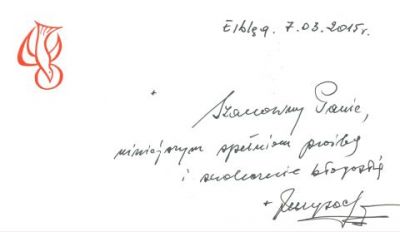 Elbląg, 7.03.2015r.
+
Szanowny Panie,
niniejszym spełniam prośbę
i serdecznie błogosł.
+